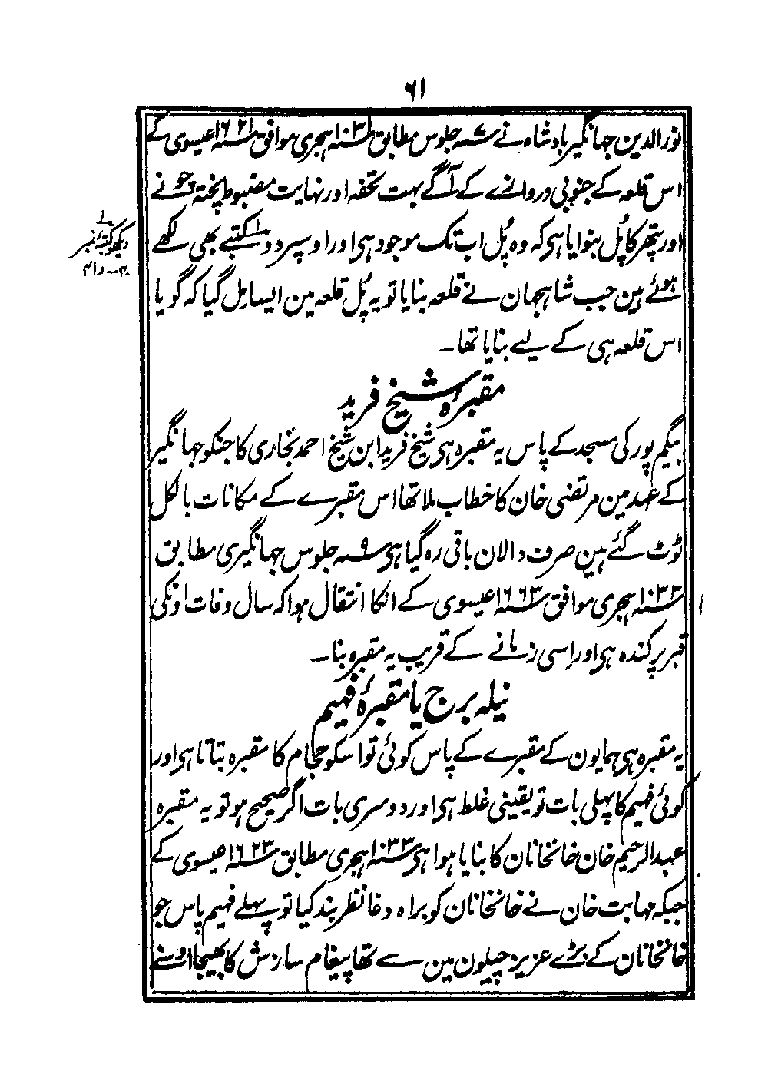 ۶۱
نورالدین جہانگیر بادشاہ نے سنہ ۷ جلوس مطابق سنہ ۱۰۳۱ ہجری موافق سنہ ۱۶۲۱ عیسوی کے
اس قلعہ کے جنوبی دروازے کے آگے بہت تحفہ اور نہایت مضبوط پختہ چونے
اور پتھر کا پُل بنوایا ہی کہ وہ پُل اب تک موجود ہی اور اوسپر دو کتبے بھی لکھے
ہوئے ہین جب شاہجہان نے قلعہ بنایا تو یہ پُل قلعہ مین ایسا مل گیا کہ گویا
اس قلعہ ہی کے لیے بنایا تھا۔
دیکھو کتبۂ نمبر
مقبرہ شیخ فرید
بیگم پور کی مسجد کے پاس یہ مقبرہ ہی شیخ فرید ابن شیخ احمد بخاری کا جنکو جہانگیر
کے عہد مین مرتضی خان کا خطاب ملا تھا اس مقبرے کے مکانات بالکل
ٹوٹ گئے ہین صرف دالان باقی رہ گیا ہی سنہ ۹ جلوس جہانگیری مطابق
سنہ ۱۰۳۳ ہجری موافق سنہ ۱۶۶۳ عیسوی کے انکا انتقال ہوا کہ سال وفات اونکی
قبر پر کندہ ہی اور اِسی زمانے کے قریب یہ مقبرہ بنا۔
نیلہ برج یا مقبرۂ فہیم
یہ مقبرہ ہی ہمایون کے مقبرے کے پاس کوئی تو اسکو حجام کا مقبرہ بتاتا ہی اور
کوئی فہیم کا پہلی بات تو یقینی غلط ہی اور دوسری بات اگر صحیح ہو تو یہ مقبرہ
عبدالرحیم خان خانخانان کا بنایا ہوا ہی سنہ ۱۰۳۳ ہجری مطابق سنہ ۱۶۲۳ عیسوی کے
جبکہ مہابت خان نے خانخانان کو براہ دغا نظر بند کیا تو پہلے فہیم پاس جو
خانخانان کے بڑے عزیز چیلون مین سے تھا پیغام سازش کا بھیجا اوسنے